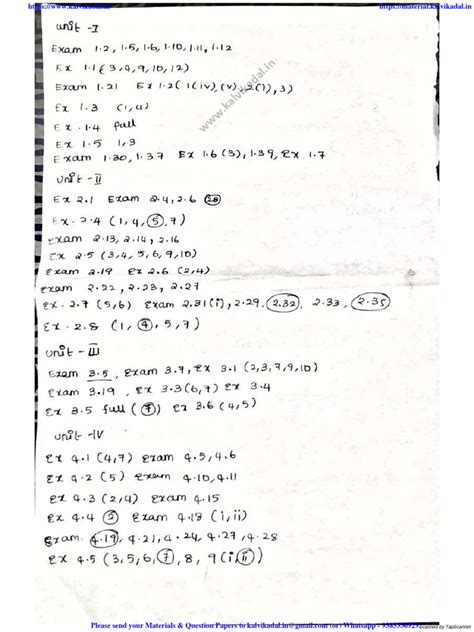 https://www.kalvikadal.in https://material.kalvikadal.in
Unit - I
Exam 1.2, 1.5, 1.6, 1.10, 1.11, 1.12
Ex 1.1 (3,4,9,10,12)
Exam 1.21 Ex 1.2 (1(iv),(v), 2(1), 3)
Ex 1.3 (1,4)
Ex 1.4 full
Ex 1.5 1,3
Exam 1.30, 1.37 Ex 1.6 (3), 1.39, Ex 1.7
www.kalvikadal.in
Unit - II
Ex 2.1 Exam 2.4, 2.6 2.8
Ex. 2.4 (1,4,5,7)
Exam 2.13, 2.14, 2.16
Ex 2.5 (3,4,5,6,9,10)
Exam 2.19 Ex 2.6 (2,4)
Exam 2.22, 2.23, 2.27
Ex. 2.7 (5,6) Exam 2.31(i), 2.29, 2.32, 2.33, 2.35
Ex. 2.8 (1, 4, 5, 7)
Unit - III
Exam 3.5, Exam 3.7, Ex 3.1 (2,3,7,9,10)
Exam 3.19, Ex 3.3 (6,7) Ex 3.4
Ex 3.5 full (7) Ex 3.6 (4,5)
Unit - IV
Ex 4.1 (4,7) Exam 4.5, 4.6
Ex 4.2 (5) Exam 4.10, 4.11
Ex 4.3 (2,4) Exam 4.15
Ex 4.4 3 Exam 4.18 (i, ii)
Exam. 4.19, 4.21, 4.24, 4.27, 4.28
Ex 4.5 (3,5,6,7, 8, 9(i,ii))
Please send your Materials & Question Papers to kalvikadal.in@gmail.com (or) Whatsapp -
Scanned by TapScanner